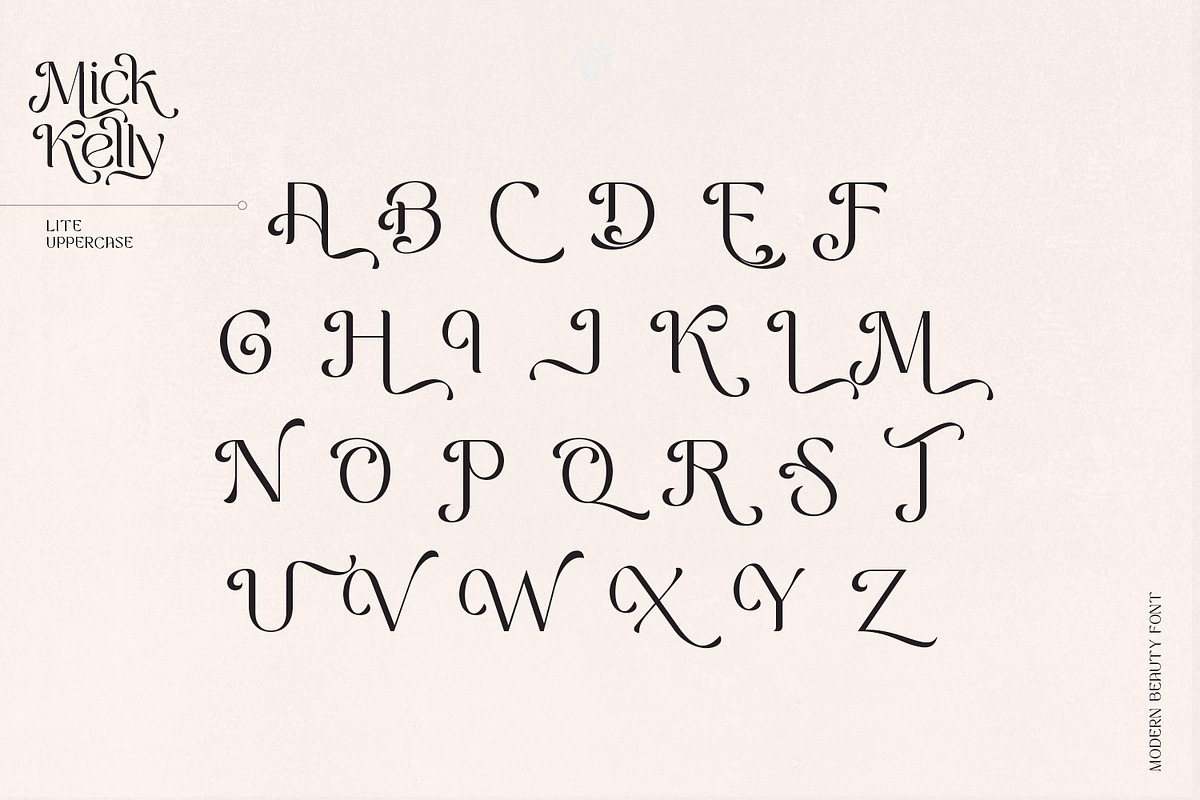 Mick
Kelly
LITE
UPPERCASE
A B C D E F
G H I J K L M
N O P Q R S T
U V W X Y Z
MODERN BEAUTY FONT